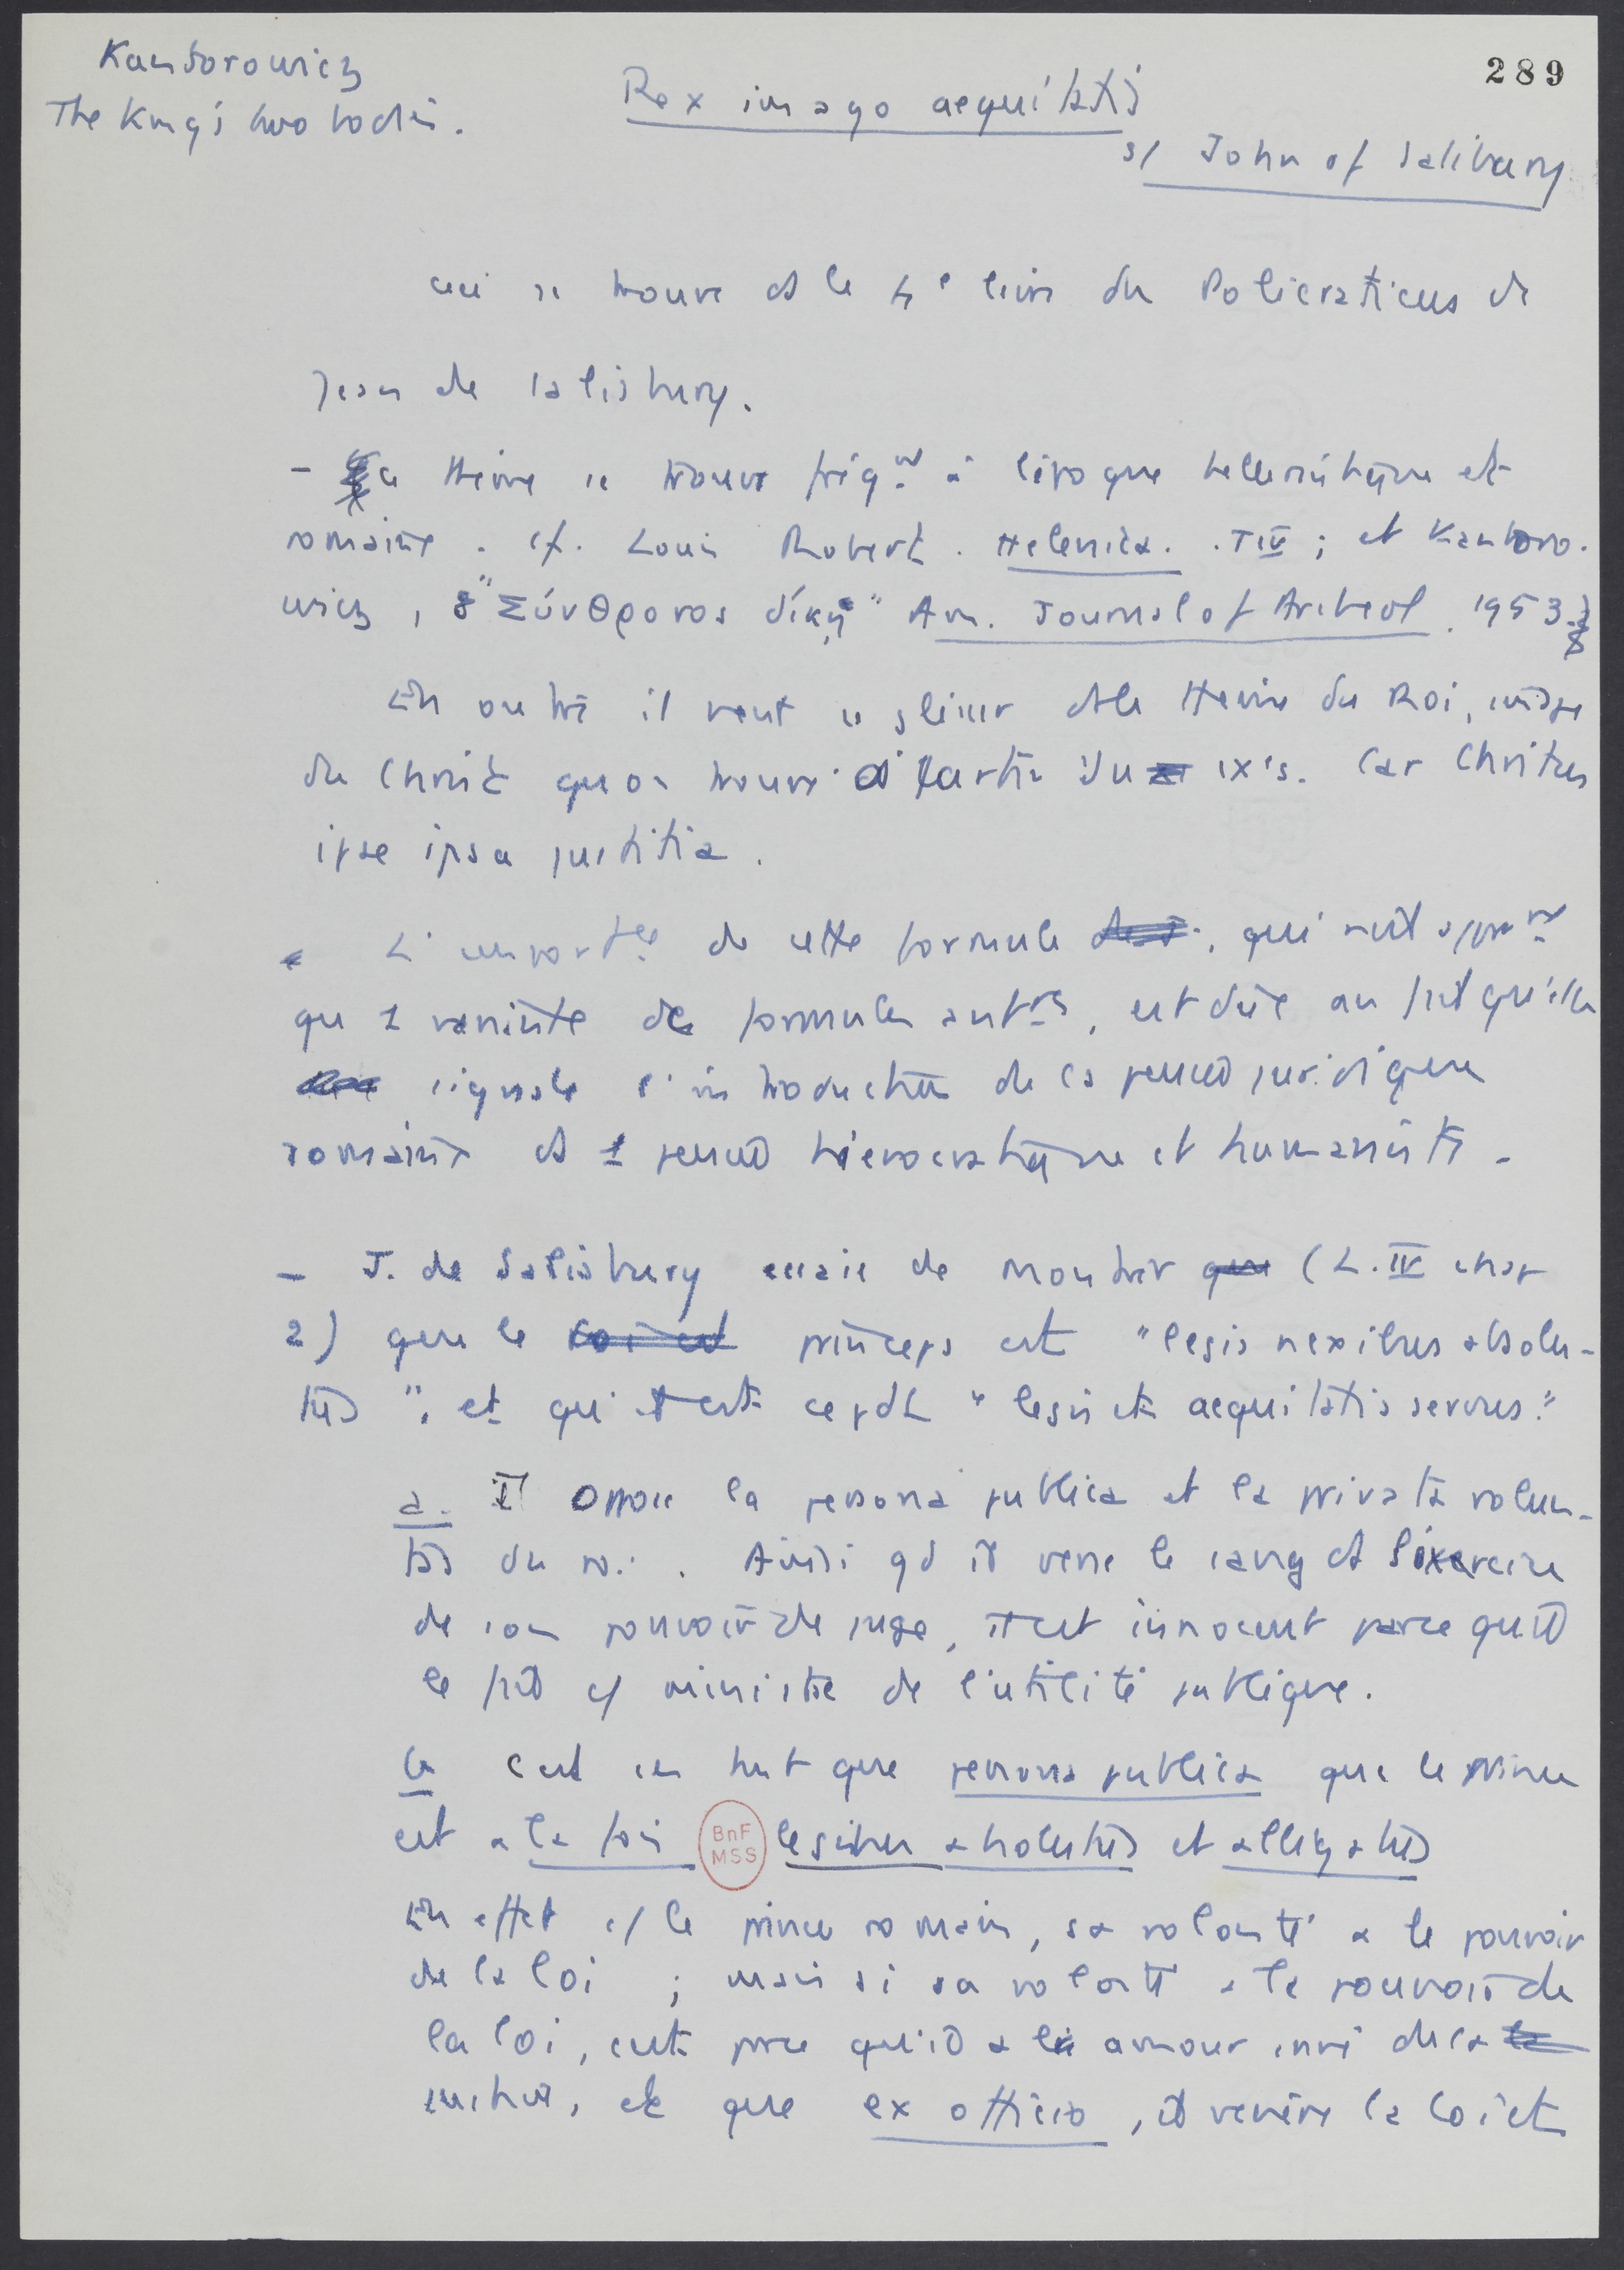 Kantorowicz
The King's two bodies.
289
Rex imago aequitatis
s/ John of Salisbury
ceci se trouve ds le 4e livre du Policraticus de
Jean de Salisbury.
- Ce thème se trouve fréqnt à l'époque hellenistique et
romaine. cf. Louis Robert. Hellenica. T IV ; et Kantoro-
wicz, "Σύνθρονος δίκῃ" Am. Journal of Archeol. 1953.
En outre il vient se glisser ds le thème du Roi, image
du Christ qu'on trouve à partir du IXe s. Car Christus
ipse ipsa justitia.
L'importce de cette formule, qui n'est appmt
qu'1 variante des formules antres, est due au fait qu'elle
signale l'introduction de la pensée juridique
romaine ds 1 pensée hierocratique et humaniste.
- J. de Salisbury essaie de montrer (L. IV chap
2) que le princeps est "legis nexibus absolu-
tus", et qu'il est cepdt "legis et aequitatis servus."
a. Il oppose la persona publica et la privata volun-
tas du roi. Ainsi qd il verse le sang ds l'exercice
de son pouvoir de juge, il est innocent parce qu'il
le fait c/ ministre de l'utilité publique.
b C'est en tant que persona publica que le prince
est à la fois legibus absolutus et alligatus
BnF
MSS
En effet c/ le prince romain, sa volonté a le pouvoir
de la loi ; mais si sa volonté a le pouvoir de
la loi, c'est parce qu'il a l' amour inné de la
justice, et que ex officio, il vénère la loi et